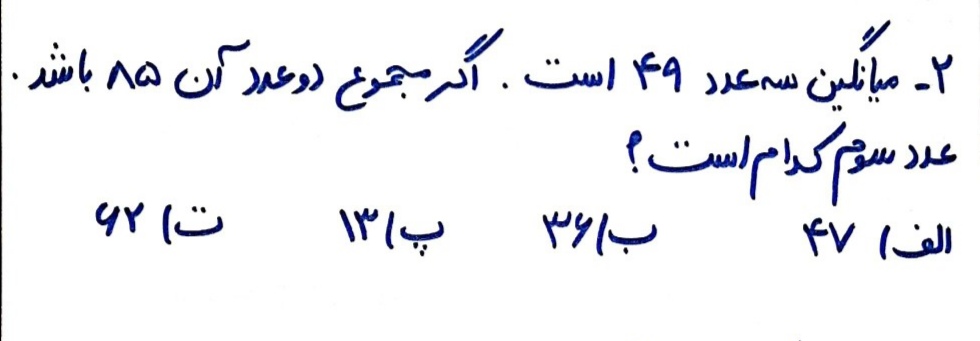 ۲- میانگین سه عدد ۴۹ است . اگر مجموع دو عدد آن ۸۵ باشد .
عدد سوم کدام است ؟
الف) ۴۷ ب) ۳۶ پ) ۱۳ ت) ۶۲